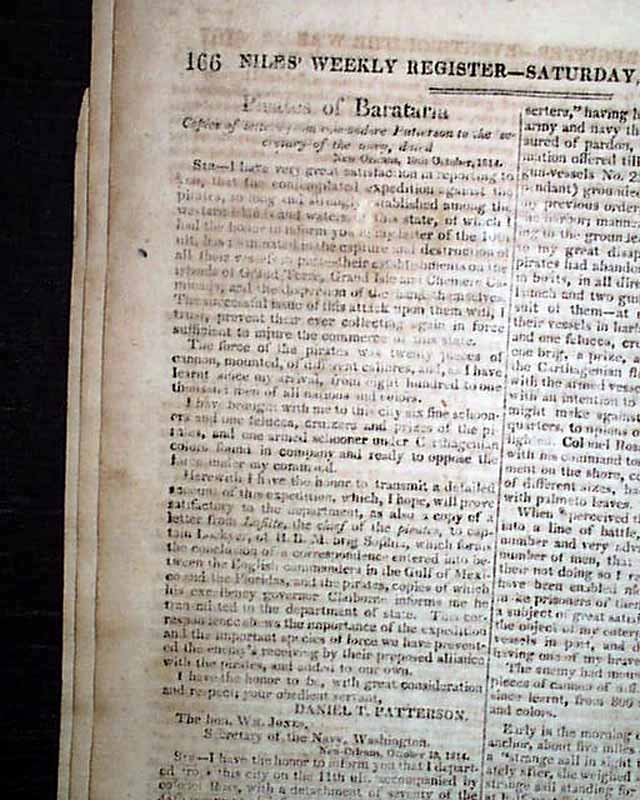 166 NILES' WEEKLY REGISTER—SATURDAY,
Pirates of Barataria
Copies of letters from commodore Patterson to the se-
cretary of the navy, dated
New Orleans, 10th October, 1814.
Sir—I have very great satisfaction in reporting to
you, that the contemplated expedition against the
pirates, so long and strongly established among the
western islands and waters of this state, of which I
had the honor to inform you in my letter of the 10th
ult. has terminated in the capture and destruction of
all their vessels in port—their establishments on the
islands of Grand Terre, Grand Isle and Cheniere Ca-
minada, and the dispersion of the band themselves.
The successful issue of this attack upon them will, I
trust, prevent their ever collecting again in force
sufficient to injure the commerce of this state.
The force of the pirates was twenty pieces of
cannon, mounted, of different calibres, and, as I have
learnt since my arrival, from eight hundred to one
thousand men of all nations and colors.
I have brought with me to this city six fine schoon-
ers and one felucca, cruizers and prizes of the pi
rates, and one armed schooner under Carthagenian
colors found in company and ready to oppose the
force under my command.
Herewith I have the honor to transmit a detailed
account of this expedition, which, I hope, will prove
satisfactory to the department, as also a copy of a
letter from Lafitte, the chief of the pirates, to cap-
tain Lockyer, of H. B. M. brig Sophia, which forms
the conclusion of a correspondence entered into be-
tween the English commanders in the Gulf of Mexi-
co and the Floridas, and the pirates, copies of which
his excellency governor Claiborne informs me he
transmitted to the department of state. This cor-
respondence shews the importance of the expedition
and the important species of force we have prevent-
ed the enemy's receiving by their proposed alliance
with the pirates, and added to our own.
I have the honor to be, with great consideration
and respect, your obedient servant,
DANIEL T. PATTERSON.
The hon. Wm. Jones,
Secretary of the Navy, Washington.
New-Orleans, October 13, 1814.
Sir—I have the honor to inform you that I depart-
ed from this city on the 11th ult. accompanied by
colonel Ross, with a detachment of seventy of the
serters," having
army and navy
sured of pardon,
mation offered
gun-vessels No. 2
grounded
my previous order
harbor; mann
ing to the ground
to my great disap
pirates had aband
in boats, in all dire
launch and two gun
suit of them—at
their vessels in harb
and one felucca,
one brig, a prize,
the Carthagenian fl
with the armed vess
with an intention to
might make agains
quarters,
Colonel Ross
with his command
ment on the shore,
of different sizes,
with palmeto leaves.
When I perceived
into a line of battle,
number and very adv
number of men, that
their not doing so I
have been enabled
make prisoners of the
a subject of great satis
the object of my enter
vessels in port, and
having one of my brave
The enemy had mou
pieces of cannon of
since learnt, from 800
and colors.
Early in the morning
anchor, about five miles
a "strange sail in sight
ately after, she weighed
strange sail standing for